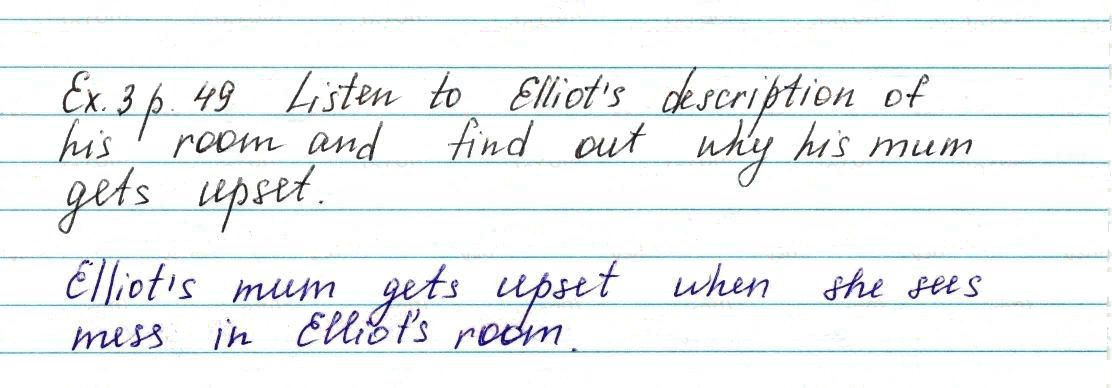 Ex. 3 p. 49 Listen to Elliot's description of
his room and find out why his mum
gets upset.
Elliot's mum gets upset when she sees
mess in Elliot's room.